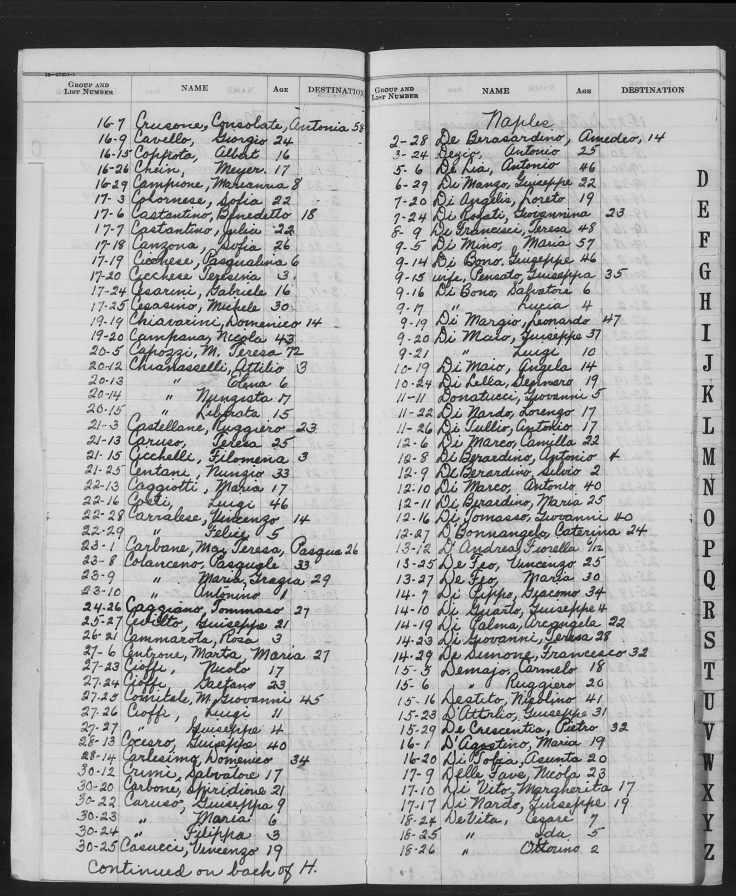 GROUP AND LIST NUMBER NAME AGE DESTINATION
16-7 Crusone, Consolate, Antonia 58
16-9 Cavello, Giorgio 24
16-15 Coppota, Albert 16
16-26 Chein, Meyer 17
16-29 Campione, Marianna 8
17-3 Colornese, Sofia 22
17-6 Castantino, Benedetto 18
17-7 Castantino, Julia 22
17-18 Canzona, Sofia 26
17-19 Cicchese, Pasqualina 6
17-20 Cicchese Teresina 3
17-24 Cesarini, Gabriele 16
17-25 Cesasino, Michele 30
19-19 Chiavarini, Domenico 14
19-20 Campana, Nicola 43
20-5 Capozzi, M. Teresa 72
20-12 Chianasselli, Attilio 3
20-13 " Elena 6
20-14 " Nungista 17
20-15 " Liberata 15
21-3 Castellane, Ruggiero 23
21-13 Caruso, Teresa 25
21-15 Cicchelli, Filomena 3
21-25 Centani, Nunzio 33
22-13 Caggiotti, Maria 17
22-16 Costi, Luigi 46
22-28 Carralese, Vincenzo 14
22-29 " Felice 5
23-1 Carbane, Ma, Teresa, Pasqua 26
23-8 Colanceno, Pasquale 33
23-9 " Maria, Grazia 29
23-10 " Antonino 1
24-26 Caggiano, Tommaso 27
25-27 Cevolto, Guiseppe 21
26-21 Cammarota, Rosa 3
27-6 Centrone, Marta, Maria 27
27-23 Cioffi, Nicolo 17
27-24 Cioffi, Gaetano 23
27-25 Comitale, M, Giovanni 45
27-26 Cioffi, Luigi 11
27-27 " Guiseppe 4
28-13 Cocero, Guiseppe 40
28-14 Carlesimo, Domenico 34
30-12 Crimi, Salvatore 17
30-20 Carbone, Spiridione 21
30-22 Caruso, Guiseppa 9
30-23 " Maria 6
30-24 " Filippa 3
30-25 Casucci, Vincenzo 19
Continued on back of H.
GROUP AND LIST NUMBER NAME AGE DESTINATION
Naples
2-28 De Berasardino, Amedeo, 14
3-24 Antonio 25
5-6 De Lia, Antonio 46
6-29 Di Manzo, Guiseppe 22
7-20 Di Angelis, Loreto 19
7-24 Di Giovannina 23
8-9 De Francisci, Teresa 48
9-5 Di Mino, Maria 57
9-14 Di Bono, Guiseppe 46
9-15 wife, Pensato, Guiseppa 35
9-16 Di Bono, Salvatore 6
9-17 " Lucia 4
9-19 Di Margio, Leonardo 47
9-20 Di Maio, Guiseppe 37
9-21 " Luigi 10
10-19 Di Maio, Angela 14
10-24 Di Lella, Gennero 19
11-11 Donatucci, Giovanni 5
11-22 Di Nardo, Lorenzo 17
11-26 Di Tullio, Antonio 17
12-6 Di Marco, Camilla 22
12-8 Di Berardino, Antonio 4
12-9 Di Berardino, Silvio 2
12-10 Di Marco, Antonio 40
12-11 Di Berardino, Maria 25
12-16 Di Tomasso, Giovanni 40
12-27 D'Bonnangela, Caterina 24
13-12 D'Andrea, Fiorella
13-25 De Feo, Vincenzo 25
13-27 De Feo, Maria 30
14-7 Di Pippo, Giacomo 34
14-10 Di Guarto, Guiseppe 4
14-19 Di Palma, Arcangela 22
14-23 Di Giovanni, Teresa 28
14-29 De Simone, Francesco 32
15-3 Demajo, Carmelo 18
15-6 " Ruggiero 20
15-16 Destito, Nicolino 41
15-23 D'Attorlio, Guiseppe 31
15-29 De Crescentia, Pietro 32
16-1 D'Agostino, Maria 19
16-20 Di Tofia, Asunta 20
17-9 Delle Fave, Nicola 23
17-10 Di Vito, Margherita 17
17-17 Di Nardo, Guiseppe 19
18-24 De Vita, Cesare 7
18-25 " Ida 5
18-26 " Ottorino 2
D
E
F
G
H
I
J
K
L
M
N
O
P
Q
R
S
T
U
V
W
X
Y
Z